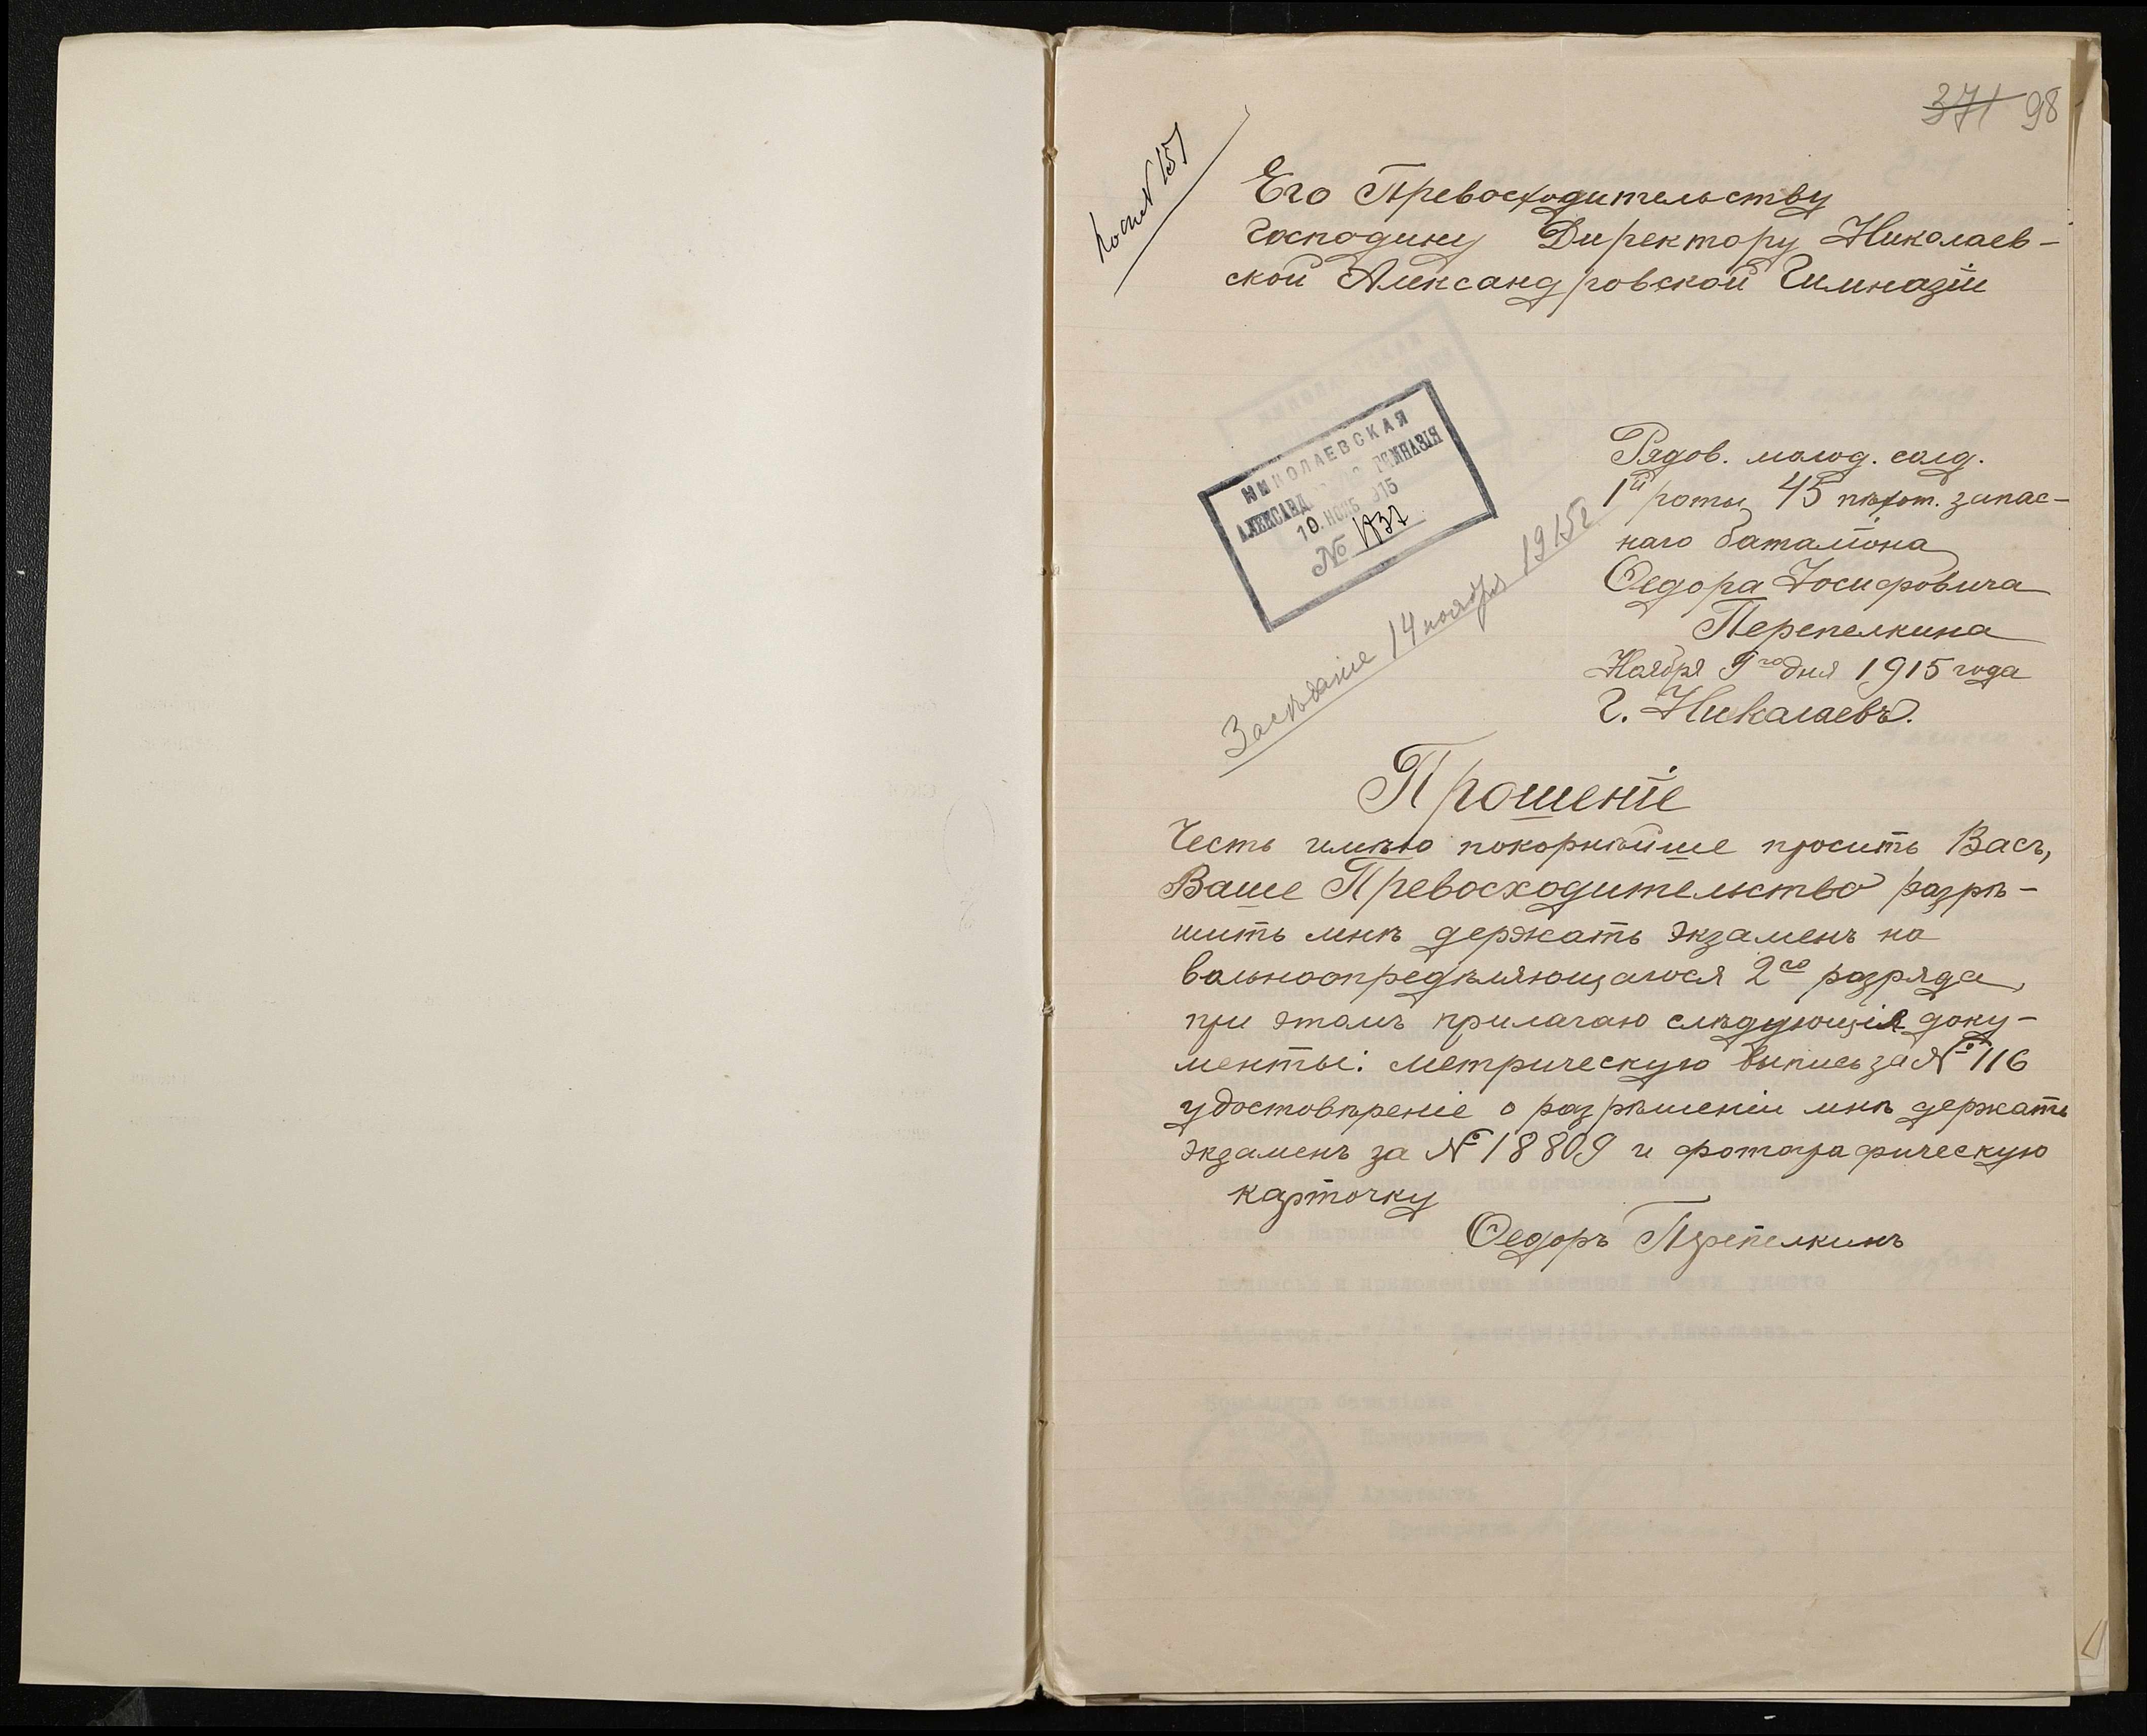 371 98
Его Превосходительству
Господину Директору Николаев-
ской Александровской Гимназіи
НИКОЛАЕВСКАЯ
АЛЕКСАНД ГИМНАЗІЯ
10. НОЯБ 915
№ 1837
Рядов. молод. солд.
1й роты 45 пѣхот. запас-
наго баталіона
Ѳедора Іосифовича
Перепелкина
Ноября 9го дня 1915 года
Г. Николаевъ.
Засѣданіе 14 ноября 1915 г.
Прошеніе
Честь имѣю покорнѣйше просить Васъ,
Ваше Превосходительство разрѣ-
шить мнѣ держать экзаменъ на
вольноопредѣляющагося 2го разряда,
при этомъ прилагаю слѣдующія доку-
менты: метрическую выпись за № 116
удостовѣреніе о разрѣшеніи мнѣ держать
экзаменъ за № 18809 и фотографическую
карточку
Ѳедоръ Перепелкинъ